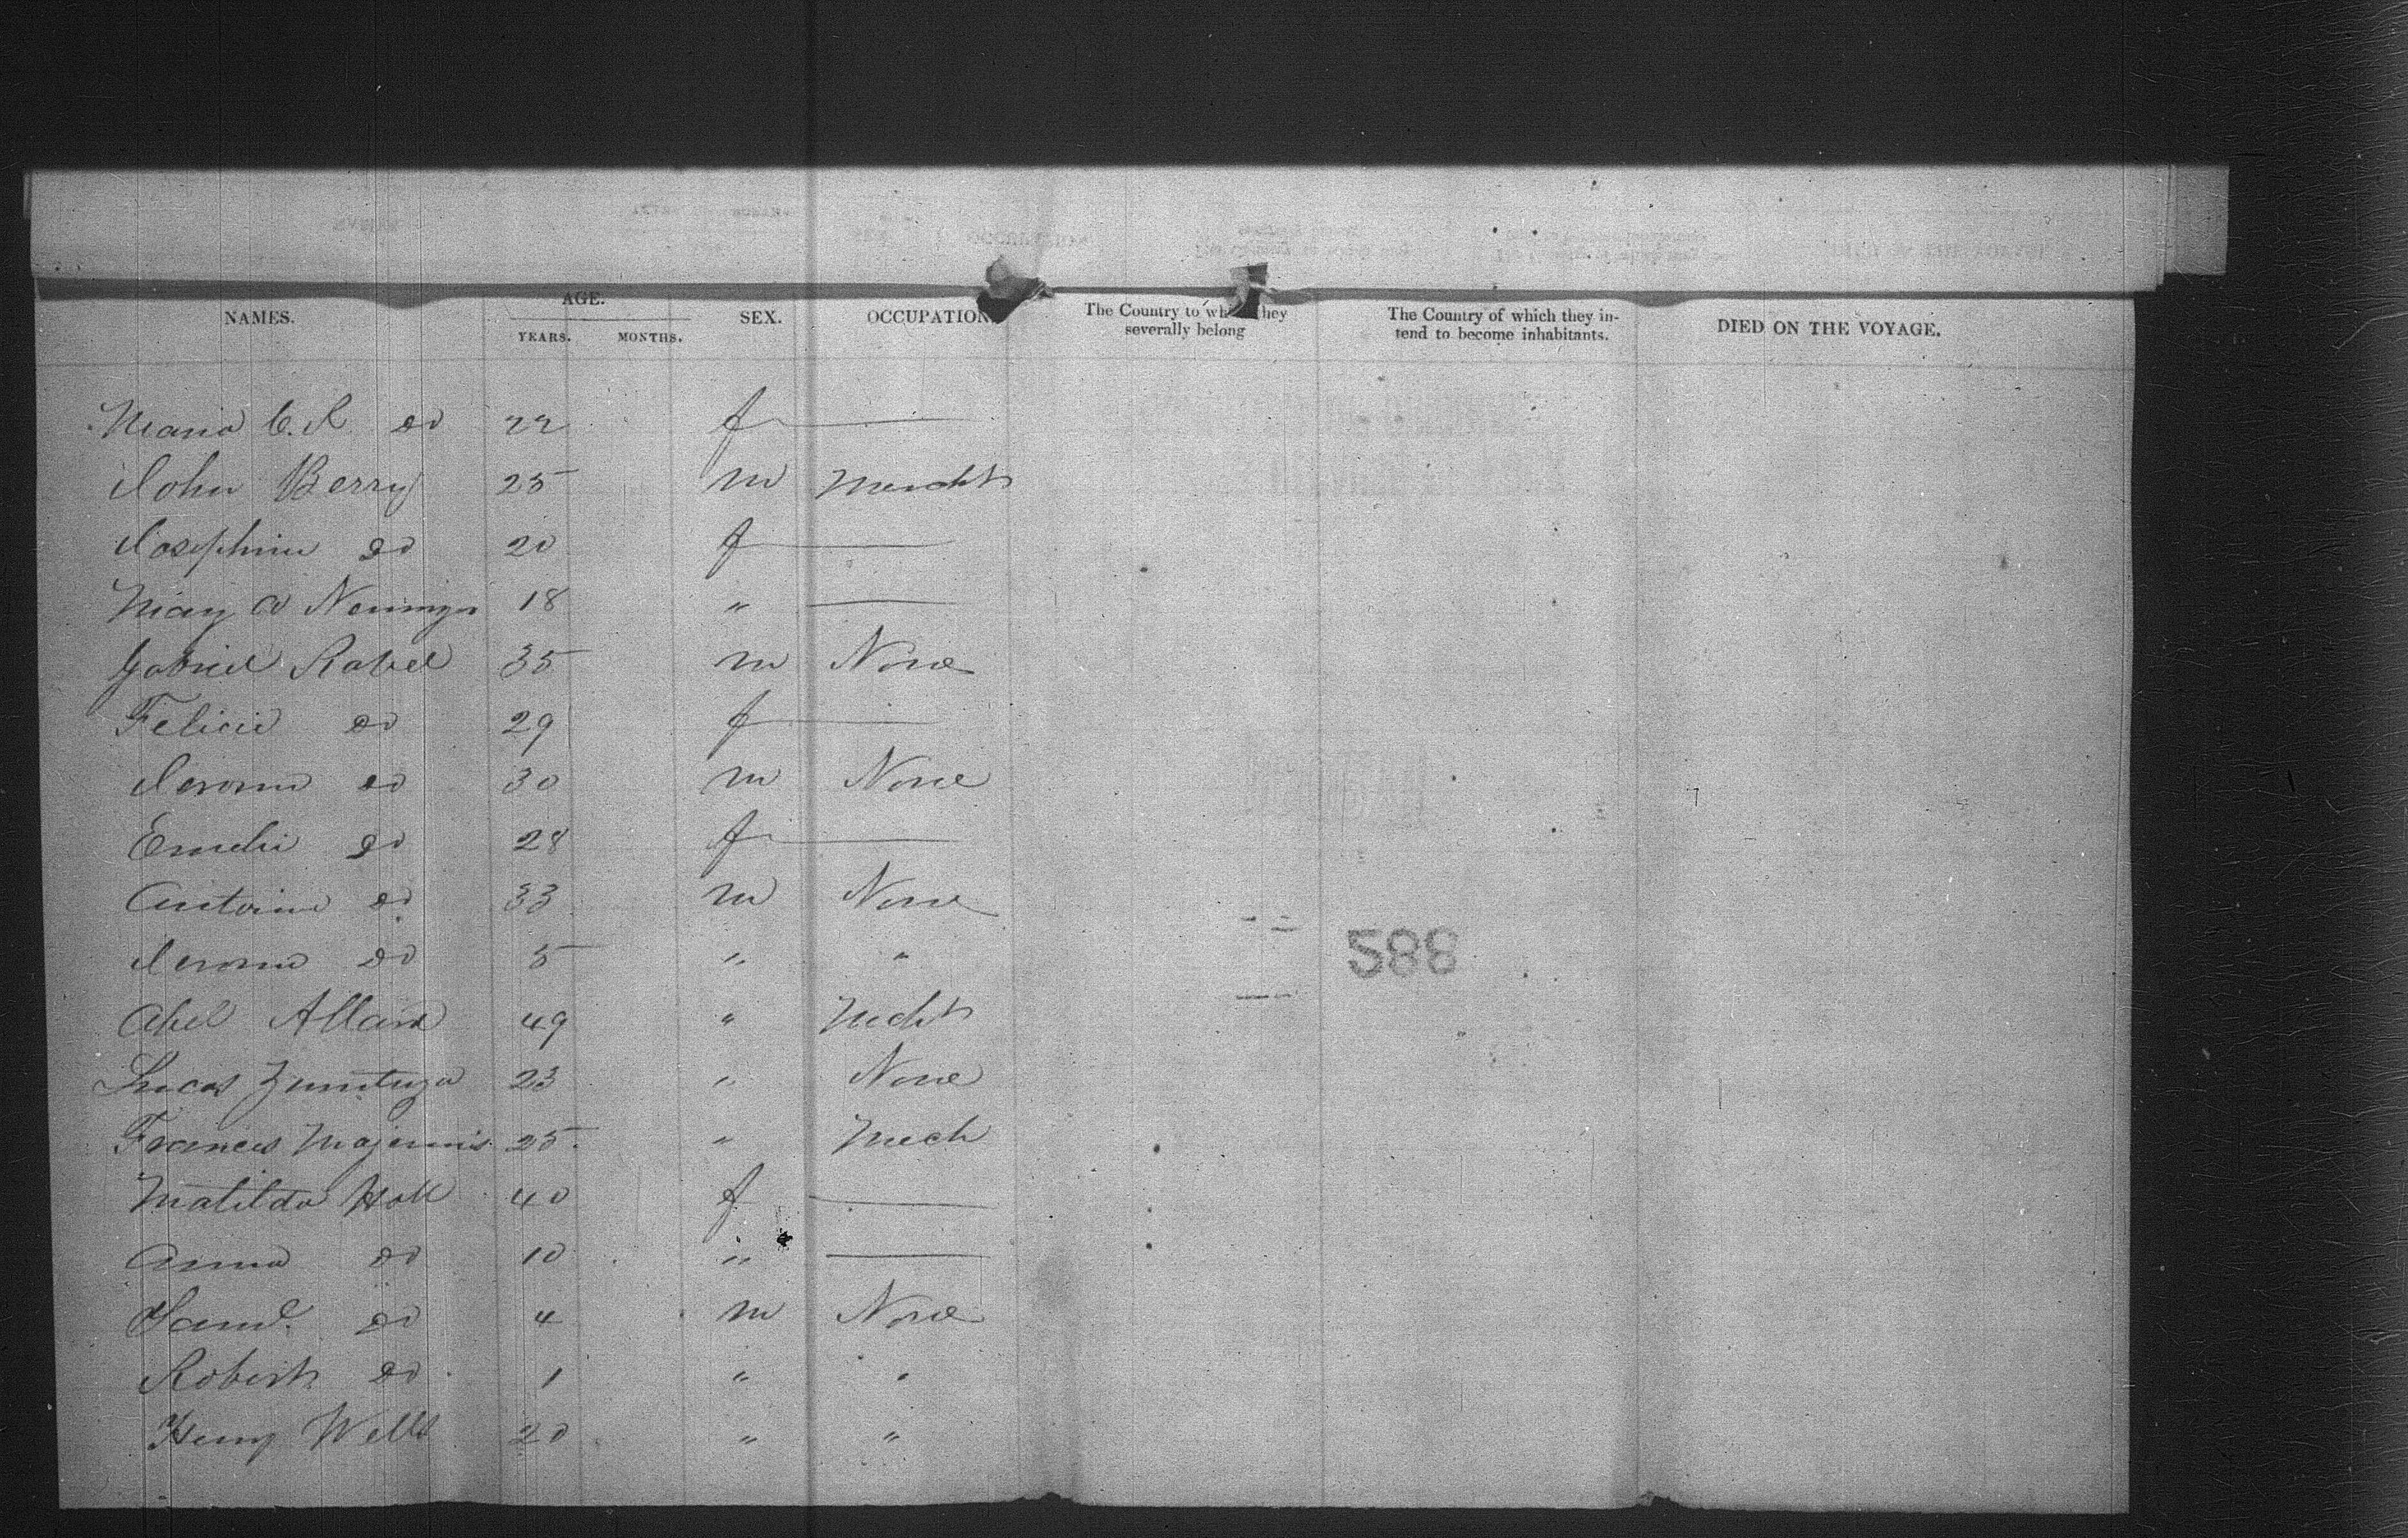 NAMES. AGE. YEARS. MONTHS. SEX. OCCUPATION. The Country to wh they severally belong The Country of which they intend to become inhabitants. DIED ON THE VOYAGE.
Maria C. R. do 22 f —
John Berry 25 m Mercht
Josephine do 20 f —
Mary A 18 " —
Gabriel Rabel 35 m None
Felicie do 29 f —
Jerome do 30 m None
Emelie do 28 f —
Antoine do 33 m None
Jerome do 5 " "
588
Abel Allard 49 " Mecht
Lucas 23 " None
Frances 25 " Mech
Matilda Holl 40 f —
Anna do 10 " —
Saml. do 4 m None
Robert do 1 " "
Henry Wells 20 " "